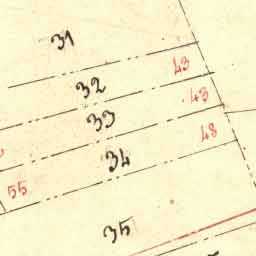 31
43
32
43
33
48
34
55
35